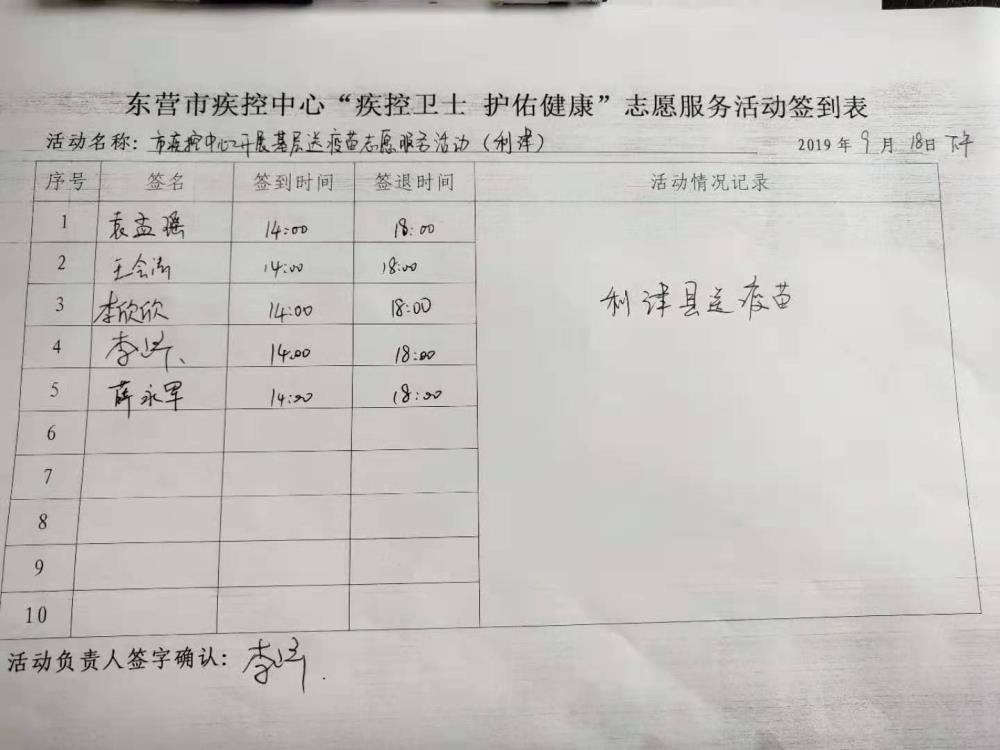 东营市疾控中心“疾控卫士 护佑健康”志愿服务活动签到表
活动名称：市疾控中心开展基层送疫苗志愿服务活动（利津） 2019年9月18日下午
序号 签名 签到时间 签退时间 活动情况记录
1 袁孟瑶 14:00 18:00
2 王会 14:00 18:00
利津县送疫苗
3 李欣欣 14:00 18:00
4 李 14:00 18:00
5 薛永军 14:00 18:00
6
7
8
9
10
活动负责人签字确认：李